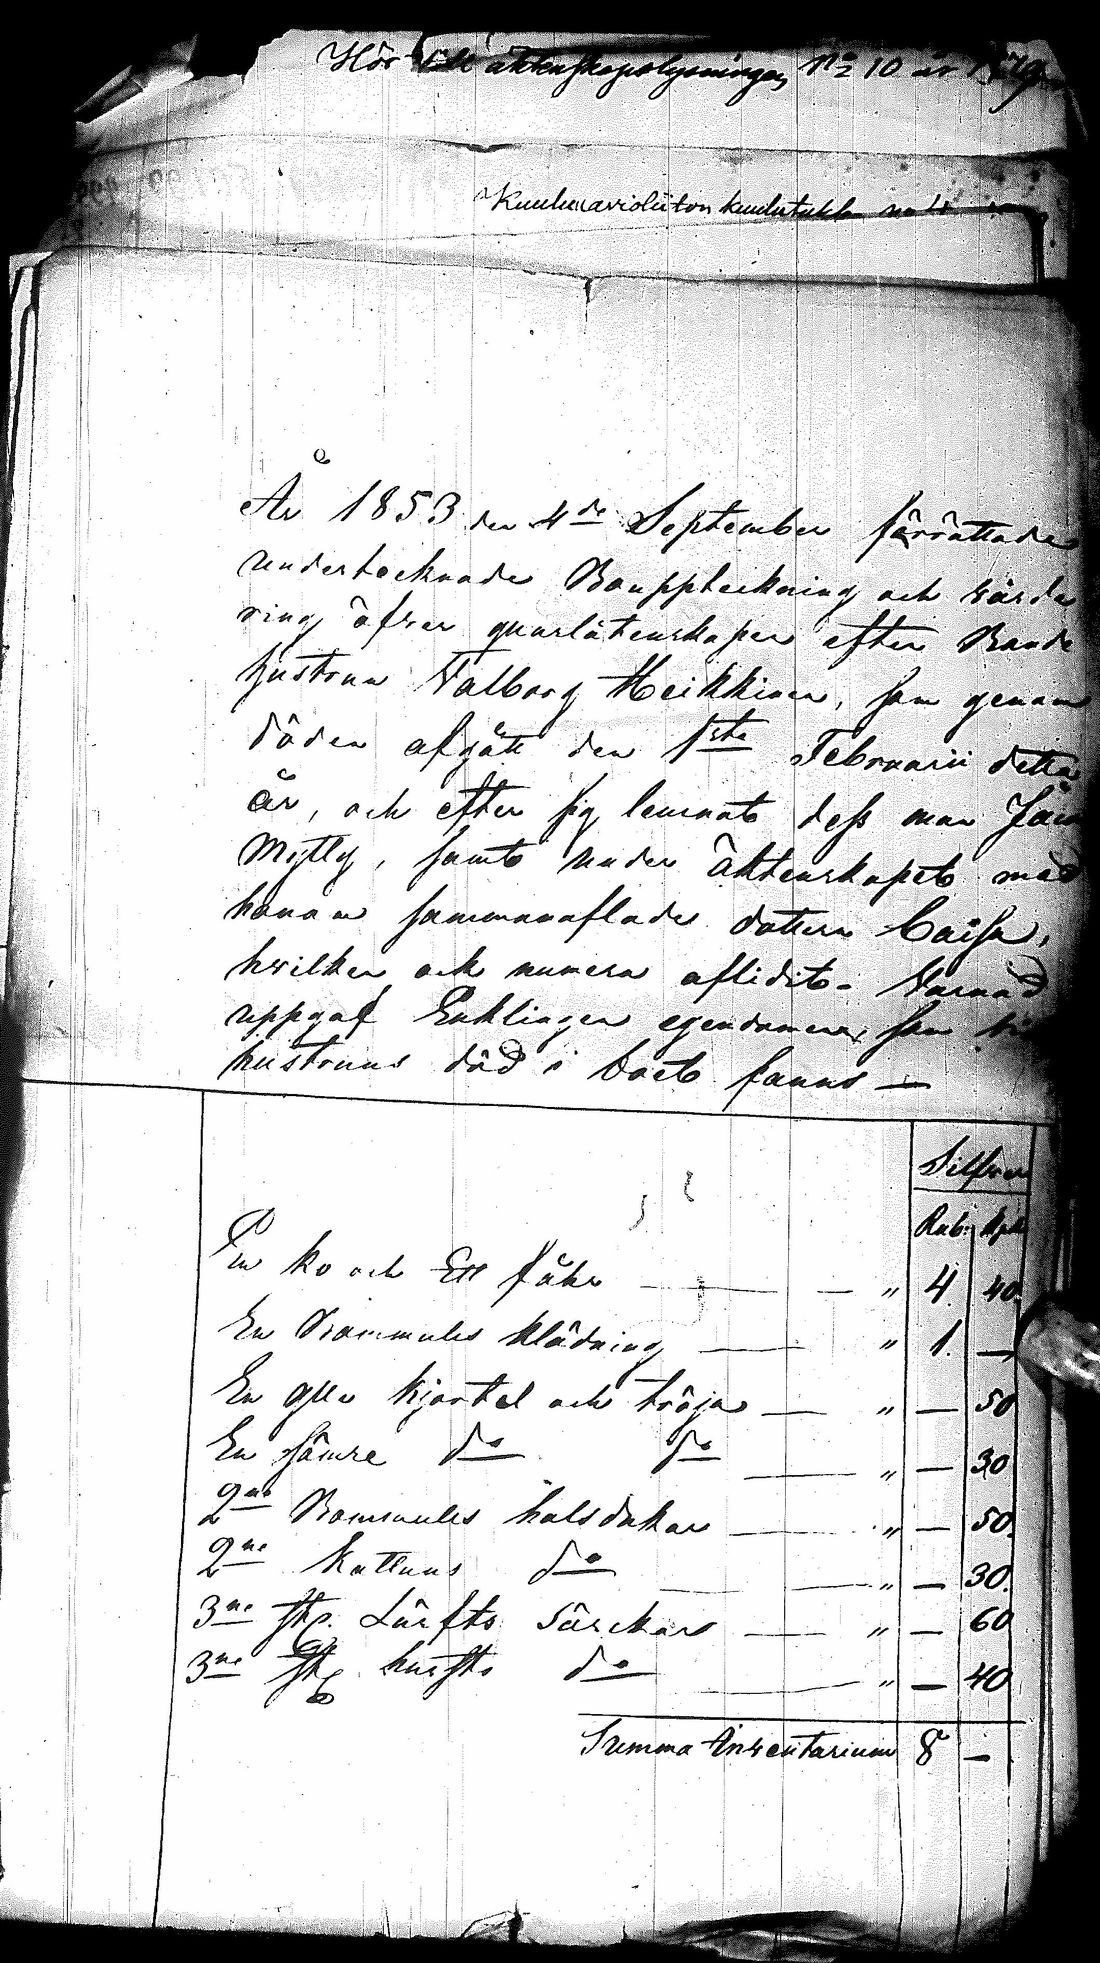 Hör till äktenskapslysningen No 10 år 1879
Kuuluu avioliiton kuulutukseen no
År 1853 den 4de September förrättade
undertecknade Bouppteckning och värde
ring öfver qvarlåtenskapen efter Bonde
hustrun Valborg Heikkinen, som genom
döden afgått den 1sta Februarii detta
år, och efter sig lemnat dess man
Mylly, samt under äktenskapet med
honom sammanaflade dottern Caisa,
hvilken ock numera aflidit. Varvid
uppgaf Enklingen egendomen, som vid
hustruns död i boet fanns —
Silfver
Rub: Kop:
En ko och Ett fåhr — — " 4. 40.
En Bommulls klädning — — " 1. —
En gul kjortel och tröja — — " — 50
En sämre do do — " — 30
2ne Bommulls halsdukar — " — 50.
2ne Kattuns do — — " — 30.
3ne st. Lärfts särckar — — " — 60
3ne st. hurfts do — — " — 40
Summa Inventarium 8 —